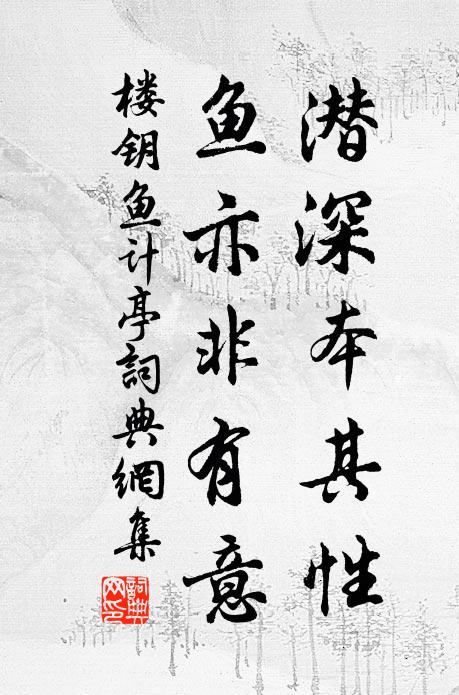 潜深本其性
鱼亦非有意
楼钥鱼计亭詞典網集
詞典网印